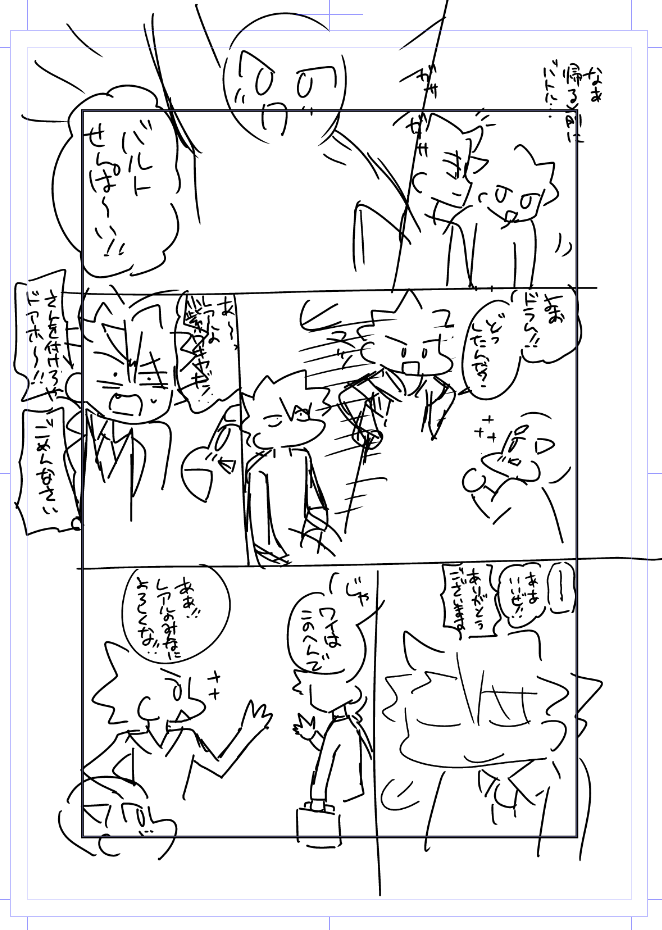 なぁ
帰る前に
バトル…
ガヤ
ガヤ
バルト
せんぱ〜い!!
よお
ドラム!!
どう
したんだ?
あ〜、
気を付けろや
ドアホ〜!!
ごめんなさい
ああ
いいぜ!!
ありがとう
ございます
じゃ
ワイは
このへんで
ああ!!
レアルのみなに
よろしくな!!